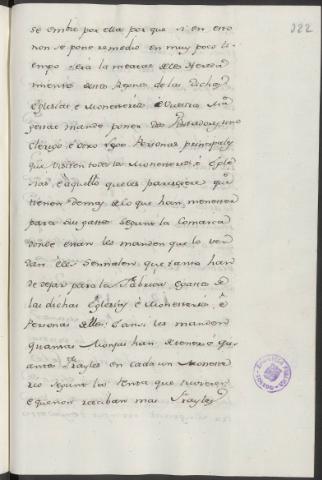 122
se entre por ella por que si en ero
non se pone remedio en muy poco ti-
empo será la metad de
miento destos Reynos de las Dichas
Iglesias é Monesterios é Vuestra Ma-
gestad mande poner dos uno
Clerigo é otro lego Personas principales
que visiten todos los Monesterios é Igle-
sias é aquello que les pareciere que
tienen demas de lo que han menester
para sus gastos segun la Comarca
donde estan les manden que lo ven-
dan é les Señalen que tanto han
de dejar para la Fabrica é gastos de
las dichas Iglesias é Monesterios, é
Personas dellos: é ansi les manden
quantas Monjas han de tener é qu-
antos Frayles en cada un Moneste-
rio segun la renta que tuvieren
é que non reciban mas Frayles